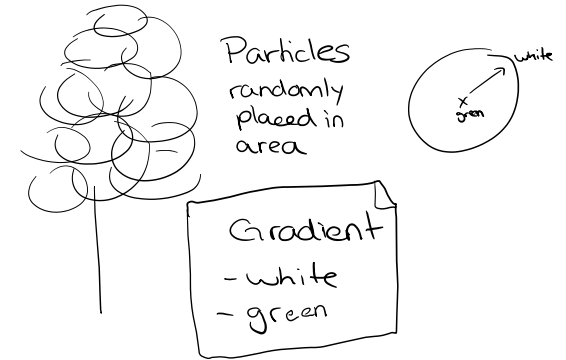 Particles
randomly
placed in
area
white
x
green
Gradient
- white
- green